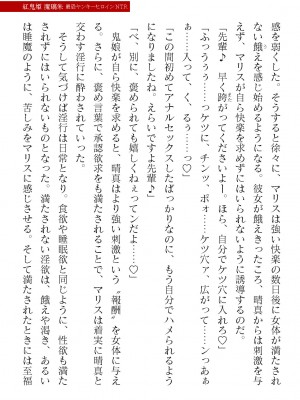 紅鬼姫 魔璃朱 最凶ヤンキーヒロインNTR
感を弱くした。そうすると徐々に、マリスは強い快楽の数日後に女体が満たされ
ない餓えを感じ始めるようになる。彼女が餓えきったころ、晴真からは刺激を与
えず、マリスが自ら快楽を求めずにはいられないように誘導するのだ。
「先輩♪ 早く跨がってくださいよー。ほら、自分でケツ穴に入れる♡」
「ふっううぅ…っっケツに、チンッ、ポォ…ケツ穴ァ、広がって…ンっあぁ
ぁ…入って、く、るぅ…っ♡」
「この間初めてアナルセックスしたばっかりなのに、もう自分でハメられるよう
になりましたね。えらいですよ先輩♪」
「べ、別に、褒められても嬉しくねぇってんだよ……♡」
鬼娘が自ら快楽を求めると、晴真はより強い刺激という〝報酬〟を女体に与え
る。さらに、褒め言葉で承認欲求をも満たされることで、マリスは着実に晴真と
交わす淫行に酔わされていった。
そうして気づけば淫行は日常となり、食欲や睡眠欲と同じように、性欲も満た
されずにはいられないものとなった。満たされない淫欲は、餓えや渇き、あるい
は睡魔のように、苦しみをマリスに感じさせる。そして満たされたときには至福